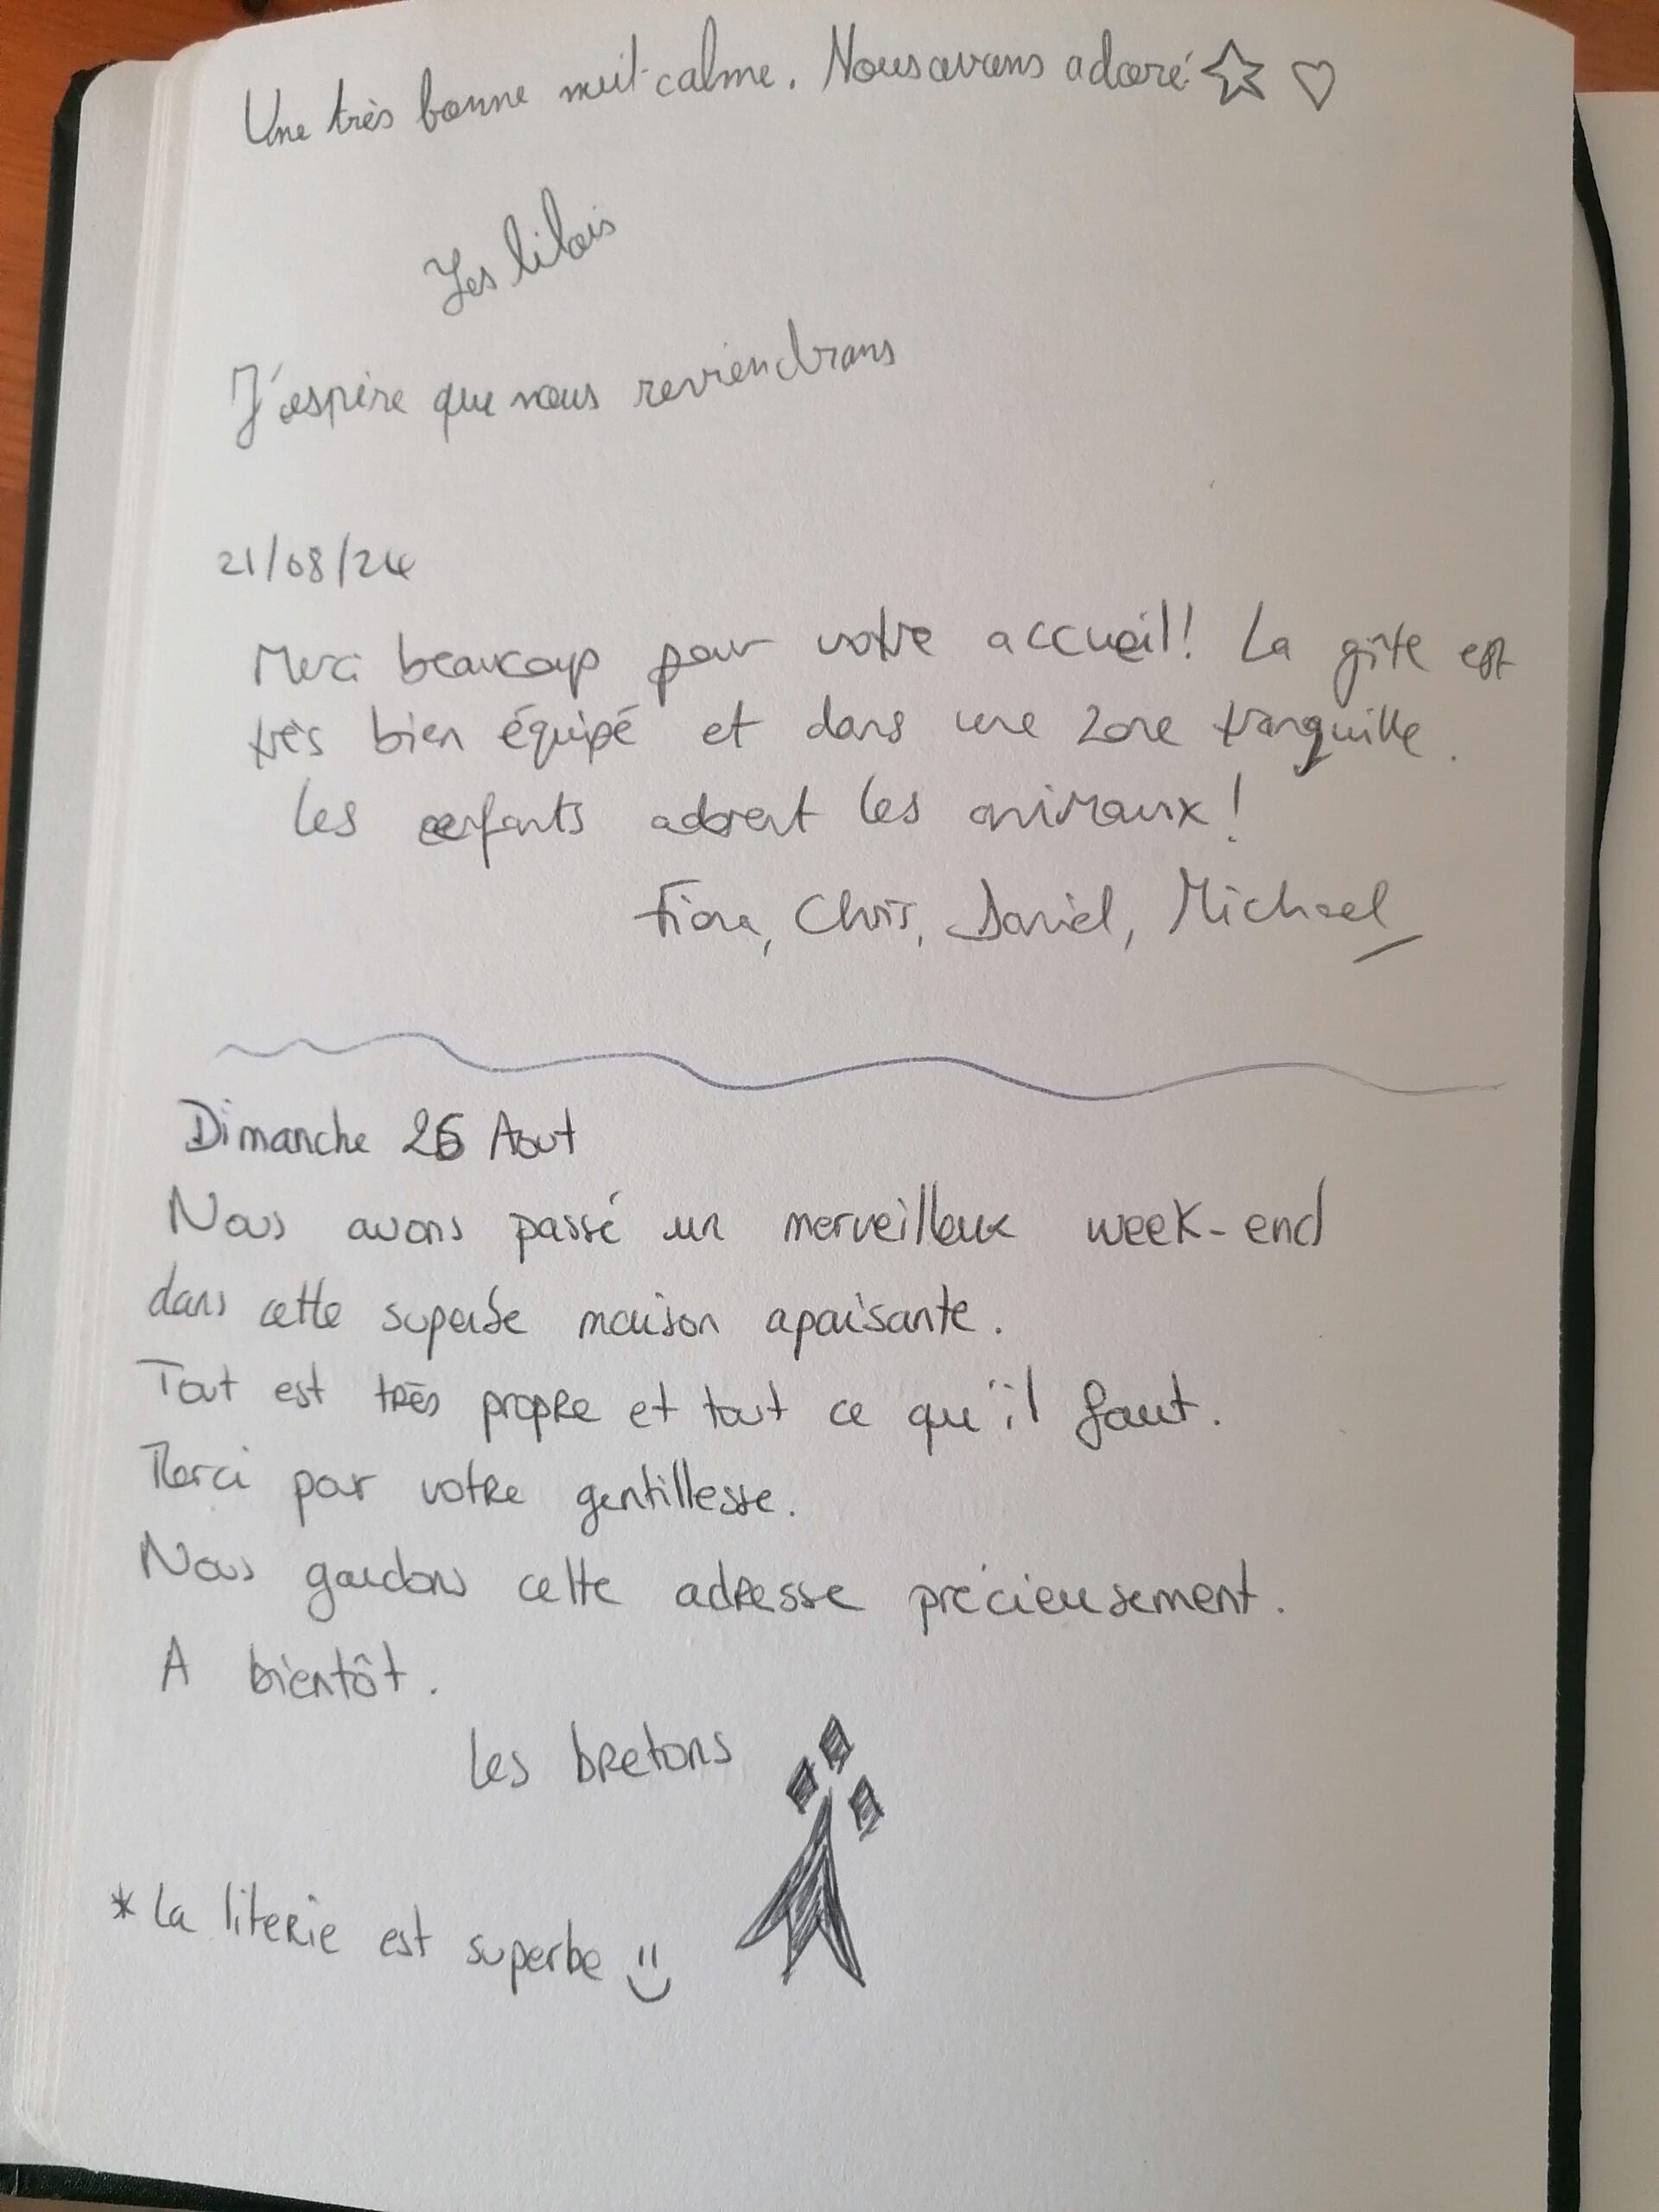 Une très bonne nuit calme. Nous avons adoré
Les lilois
J'espère que nous reviendrons
21/08/24
Merci beaucoup pour votre accueil! La gîte est
très bien équipé et dans une zone tranquille.
Les enfants adorent les animaux!
Fiona, Chris, Daniel, Michael
Dimanche 25 Aout
Nous avons passé un merveilleux week-end
dans cette superbe maison apaisante.
Tout est très propre et tout ce qu'il faut.
Merci pour votre gentillesse.
Nous gardons cette adresse précieusement.
A bientôt.
Les bretons
* La literie est superbe